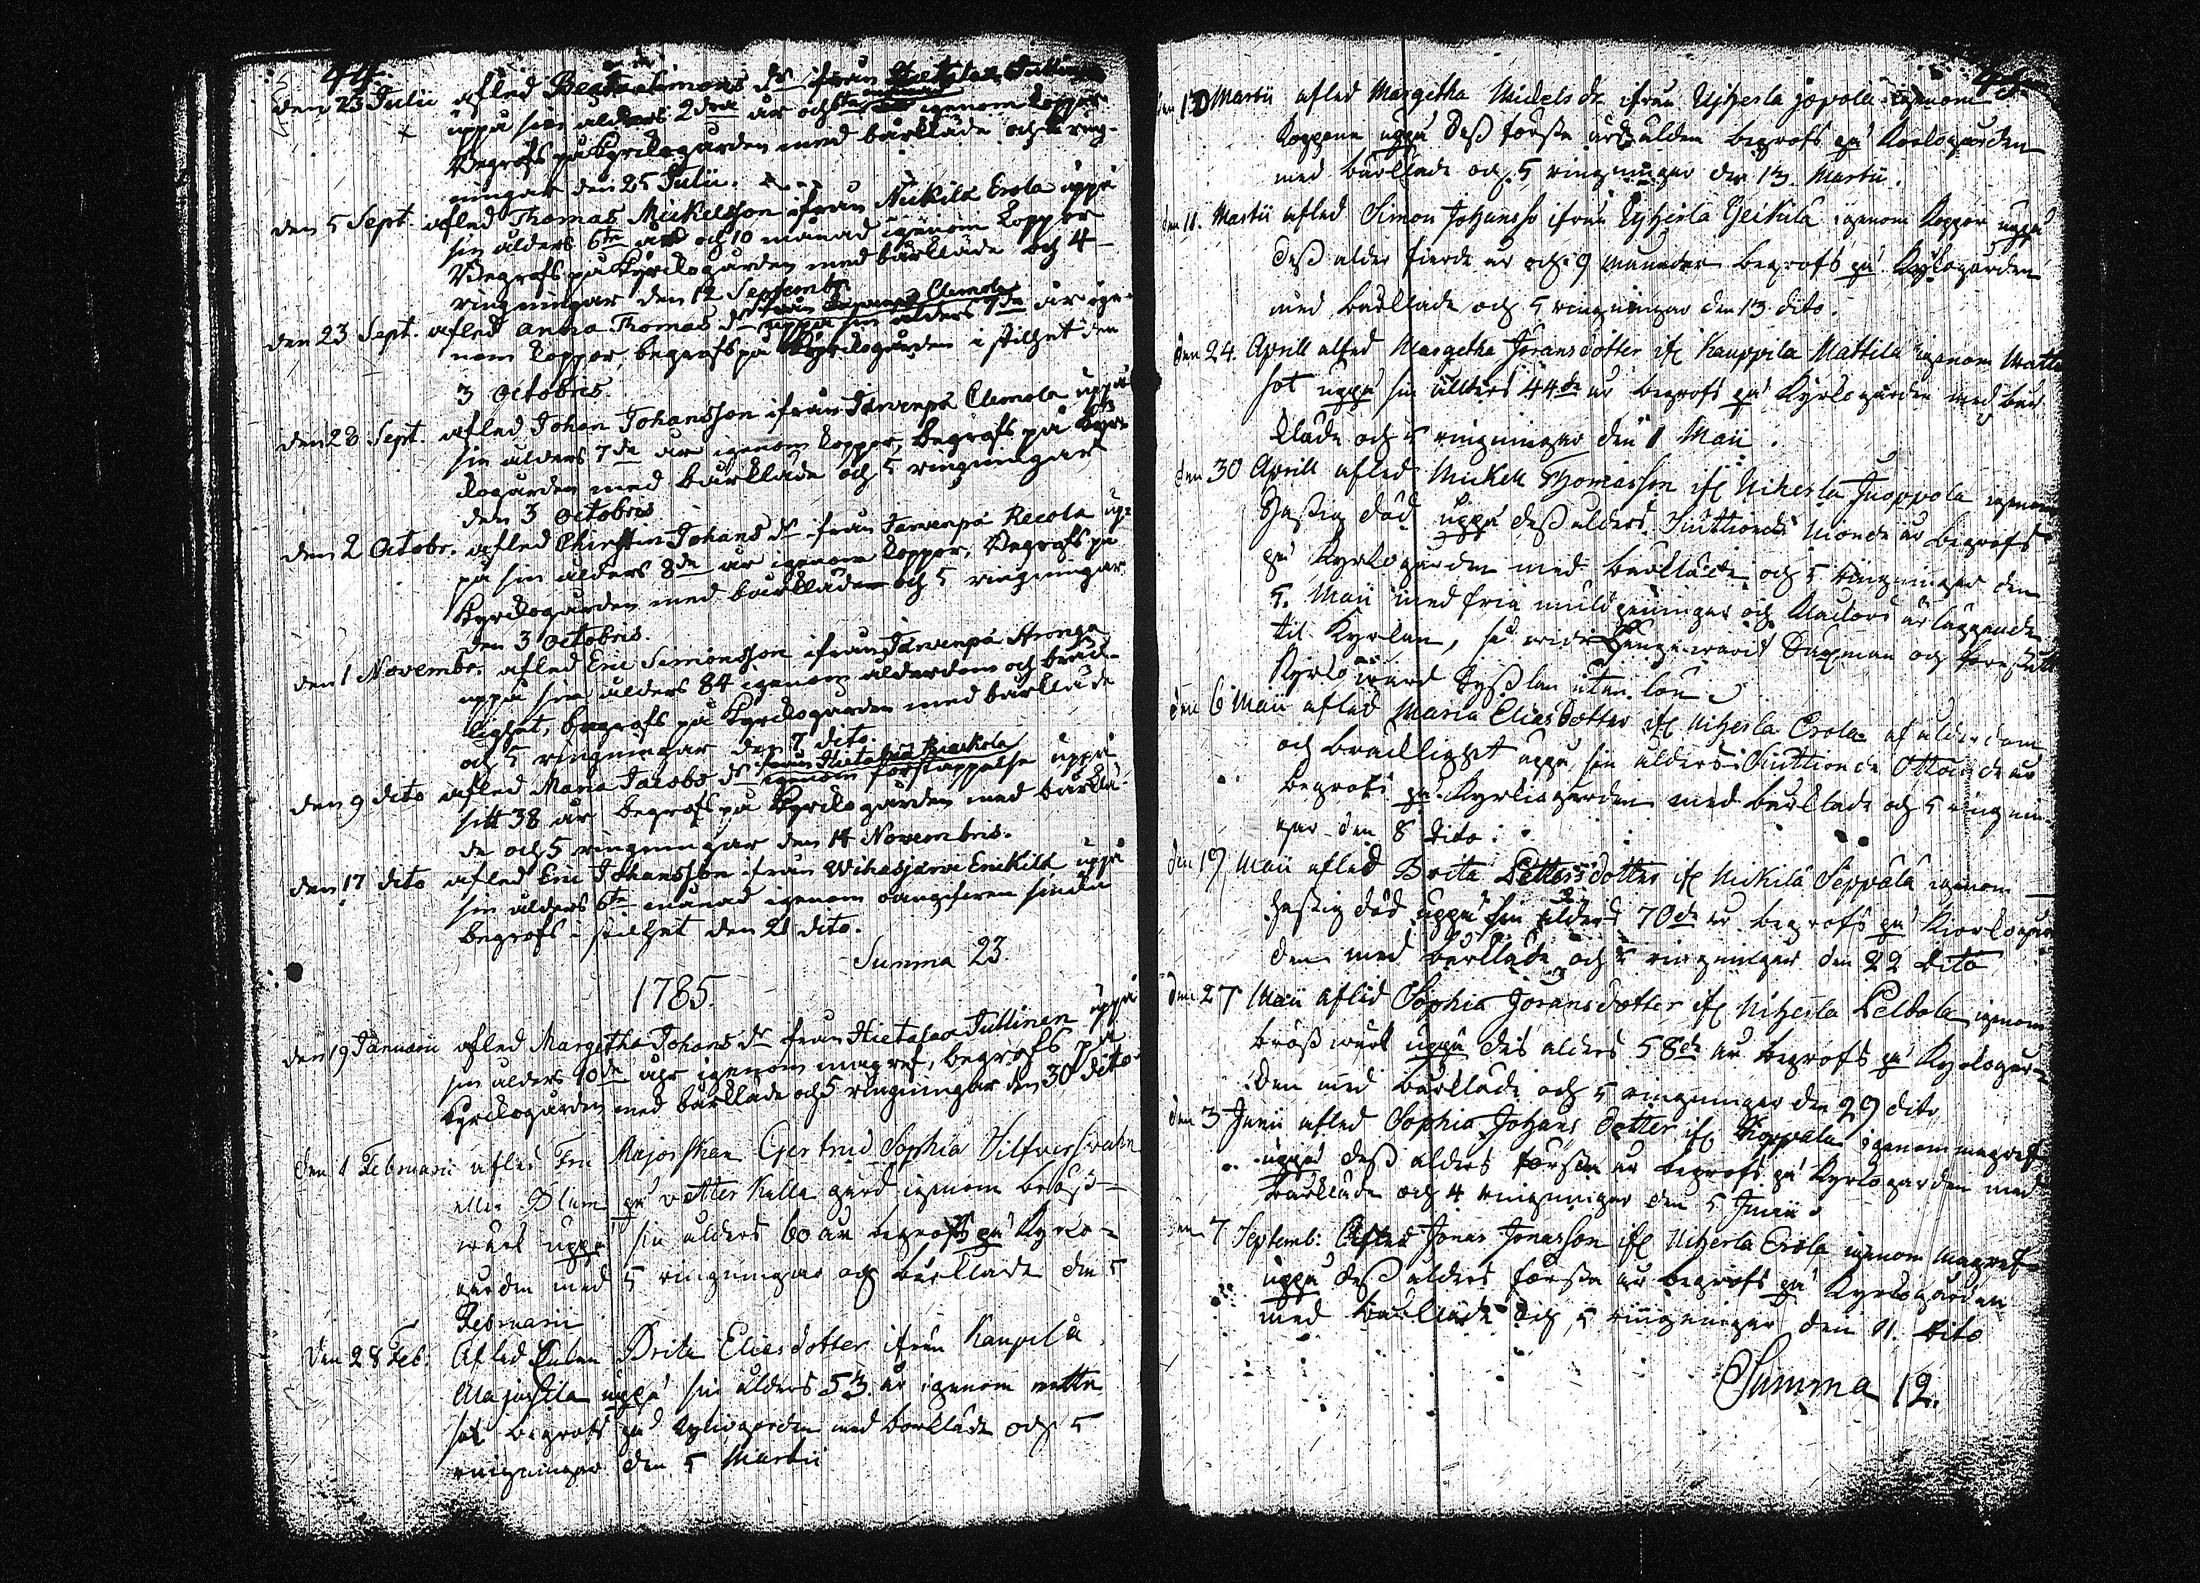 44.
den 23 Julii afled Beata Simons dr ifrån Hietalax Tullinen
uppå sin alders 2dra år och igenom koppor
Begrofs på kyrckogården med bårkläde och ring-
ningar den 25 Julii.
den 5 Sept. afled Thomas Mickelsson ifrån Nickilä Erola uppå
sin ålders 6te år och 10 månad igenom koppor
Begrofs på kyrckogården med bårkläde och 4
ringningar den 12 Septembr.
ifrån Järvenpä Clemola
den 23 Sept. afled Anna Thomas dr uppå sin ålders 7de år ige-
nom koppor, begrofs på kyrckogården i stilhet den
3 Octobris.
den 28 Sept. afled Johan Johansson ifrån Järvenpä Clemola uppå
sin ålders 7de år igenom koppor, begrofs på kyr-
kogården med bårkläde och 5 ringningar
den 3 Octobris
den 2 Octobr. afled Christin Johans dr ifrån Jarvenpä Recola up-
på sin ålders 8de år igenom koppor, Begrofs på
kyrckogården med bårkläde och 5 ringningar
den 3 Octobris.
den 1 Novembr. afled Eric Simonsson ifrån Järvenpä Stronga
uppå sin ålders 84 igenom ålderdom och bräck-
lighet, begrofs på kyrckogården med bårkläde
och 5 ringningar den 7 dito.
ifrån Hietalax
den 9 dito afled Maria Jacobs dr igenom förstoppelse uppå
sitt 38 år begrofs på kyrckogården med bårklä-
de och 5 ringningar den 14 Novembris.
den 17 dito afled Eric Johansson ifrån Wihasjärvi Enckilä uppå
sin ålders 6te månad igenom siuka
begrofs i stilhet den 21 dito.
Summa 23.
1785.
den 19 Januarii afled Margetha Johans dr ifrån Hietalax Tullinen uppå
sin ålders 10de åhr igenom magref, begrofs på
kyrckogården med bårkläde och 5 ringningar den 30 dito
den 1 Februarii afled Fru Majorskan Gjertrud Sophia Silfversvahn
eller Blum på vetter kulla gård igenom bröst-
värk uppå sin ålders 60 år begrofs på kyrko-
gården med 5 ringningar och bårkläde den 5
Februarii
den 28 Feb. Afled Enkan Brita Eliesdotter ifrån Kaupila
Alajoskila uppå sin ålders 53 år igenom vatte
sot begrofs på kyrkogården med bårkläde och 5
ringningar den 5 Martii
den 10 Martii afled Margetha Mickels dr ifrån Uihierla igenom
koppone uppå deß första års ålder begrofs på kyrkogården
med bårkläde och 5 ringningar den 13. Martii.
den 11. Martii afled Simon Johansso ifrån igenom koppor uppå
deß ålder fierde år och 9 månader begrofs på kyrkogården
med bårkläde och 5 ringningar den 13 dito.
den 24. Aprill afled Margetha Jöransdotter if Kauppila Mattila igenom vatte
sot uppå sin ålders 44de år begrofs på kyrkogården med bår
kläde och 5 ringningar den 1 Maii.
den 30 Aprill afled Mickel Thomasson if Niherla Juoppola igenom
hastig död uppå deß ålders Siuttionde Nionde år begrofs
på kyrkogården med bårkläde och 5 ringningar den
5. Maii med fria
til Kyrkan, och
Kyrko värd Syßlan utan lön
den 6 Maii afled Maria Eliesdotter if Niherla Erola af ålderdom
och bräcklighet uppå sin ålders Siuttionde Ottonde år
begrofs på kyrkogården med bårkläde och 5 ringnin-
gar den 8 dito.
den 19 Maii afled Brita Pettersdotter if Nickilä Seppälä igenom
hastig död uppå sin ålders 70de år begrofs på kyrkogår
den med bårkläde och 5 ringningar den 22 dito
den 27 Maii afled Sophia Jöransdotter if Niherla Peldola igenom
bröst värk uppå des alders 58de år begrofs på kyrkogår-
den med bårkläde och 5 ringningar den 29 dito
den 3 Junii afled Sophia Johans Dotter if igenom magref
uppå deß alders första år begrofs på kyrkogården med
bårkläde och 4 ringningar den 5 Junii
den 7 Septemb: Afled Jonas Jonasson if Niherla Erola igenom magref
uppå deß alders första år begrofs på kyrkogården
med bårkläde och 5 ringningar den 11. dito
Summa 12.